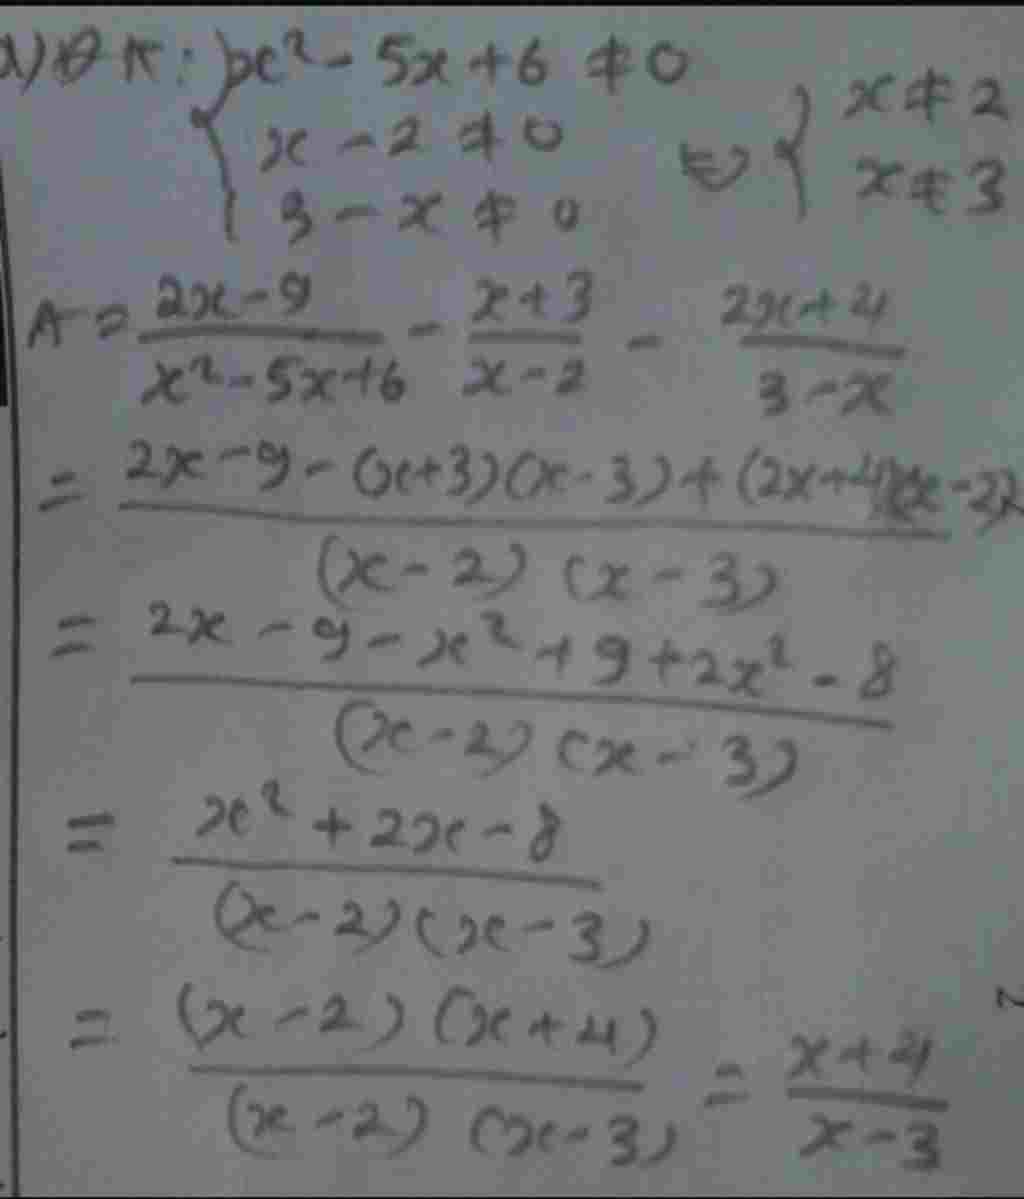 a) ĐK: { x² - 5x + 6 ≠ 0
x - 2 ≠ 0
3 - x ≠ 0
⇔ { x ≠ 2
x ≠ 3
A = (2x - 9)/(x² - 5x + 6) - (x + 3)/(x - 2) - (2x + 4)/(3 - x)
= (2x - 9 - (x + 3)(x - 3) + (2x + 4)(x - 2))/((x - 2)(x - 3))
= (2x - 9 - x² + 9 + 2x² - 8)/((x - 2)(x - 3))
= (x² + 2x - 8)/((x - 2)(x - 3))
= ((x - 2)(x + 4))/((x - 2)(x - 3)) = (x + 4)/(x - 3)